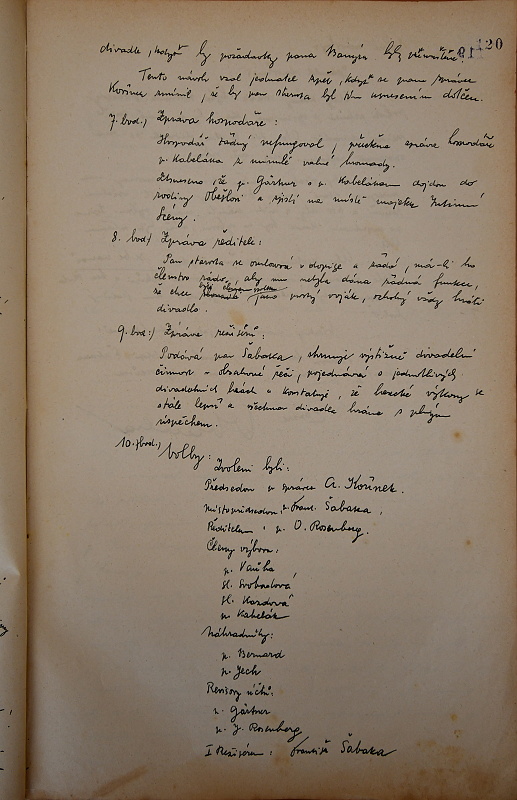 120
divadle, když by požadavky pana
Tento návrh vzal jednatel zpět, když se pan správce
Kořínek zmínil, že by pan starosta byl tím usnesením dotčen.
7. bod.) Zpráva hospodáře:
Hospodář řádný nefungoval, přečtena zpráva hospodáře
p. Kabeláka z minulé valné hromady.
Usneseno, že p. Gärtner s p. Kabelákem dojdou do
rodiny a zjistí na místě majetek Intimní
Scény.
8. bod) Zpráva ředitele:
Pan starosta se omlouvá v dopise a žádá, má-li ho
členstvo rádo, aby mu nebyla dána žádná funkce,
že chce jako prostý voják, ochotný vždy hráti
divadlo.
9. bod:) Zpráva režisérů:
Podává pan Šabaka, shrnuje výstižně divadelní
činnost - obsahové řeči, pojednává o jednotlivých
divadelních hrách a konstatuje, že herecké výkony se
stále lepší a všechna divadla hrána s plným
úspěchem.
10. bod.) Volby:
Zvoleni byli:
Předsedou p. správce A. Kořínek.
Místopředsedou: p. Frant. Šabaka,
Ředitelem: p. O. Rosenberg.
Členy výboru:
p. Vaňha
sl. Svobodová
sl. Kazdová
p. Kabelák
Náhradníky:
p. Bernard
p. Jech
Revisory účtů:
p. Gärtner
p. J. Rosenberg
I Režisérem: František Šabaka